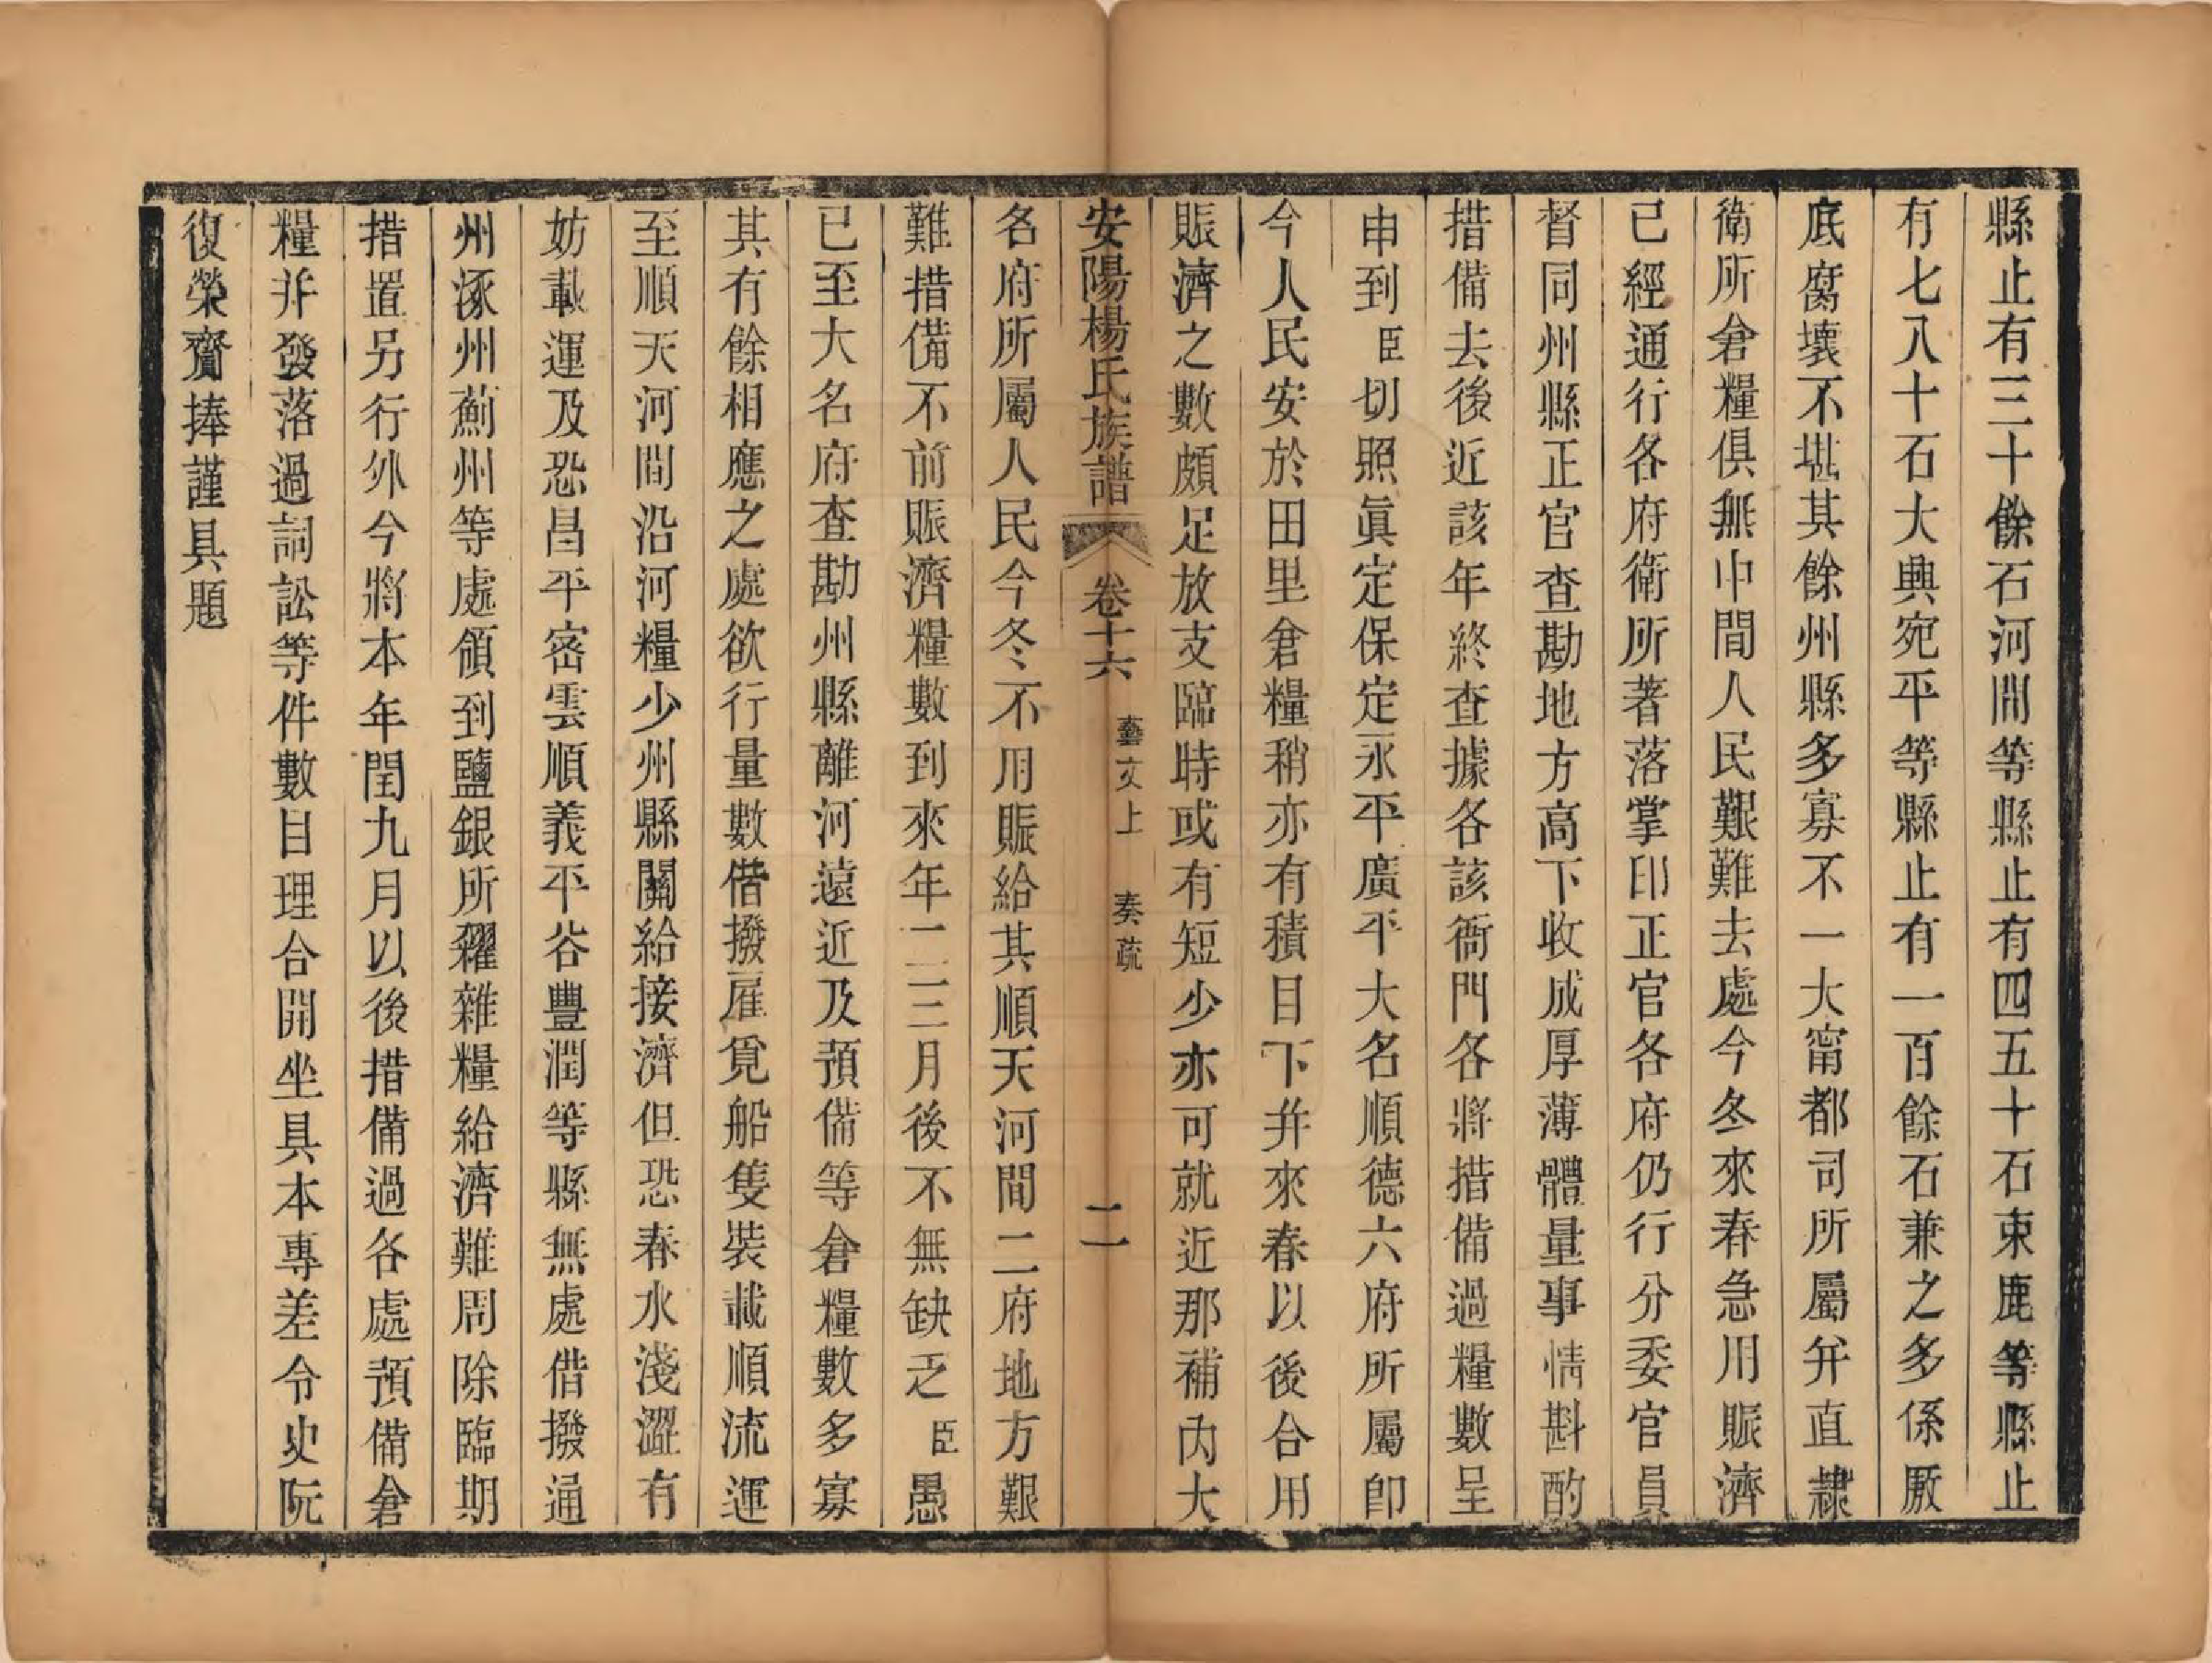 縣止有三十餘石河間等縣止有四五十石束鹿等縣止
有七八十石大興宛平等縣止有一百餘石兼之多係厫
底腐壞不堪其餘州縣多寡不一大甯都司所屬并直隸
衛所倉糧俱無中間人民艱難去處今冬來春急用賑濟
已經通行各府衛所著落掌印正官各府仍行分委官員
督同州縣正官查勘地方高下收成厚薄體量事情斟酌
措備去後近該年終查據各該衙門各將措備過糧數呈
申到臣切照眞定保定永平廣平大名順德六府所屬卽
今人民安於田里倉糧稍亦有積目下并來春以後合用
賑濟之數頗足放支臨時或有短少亦可就近那補內大
安陽楊氏族譜 卷十六 藝文上 奏疏 二
名府所屬人民今冬不用賑給其順天河間二府地方艱
難措備不前賑濟糧數到來年二三月後不無缺乏臣愚
已至大名府查勘州縣離河遠近及預備等倉糧數多寡
其有餘相應之處欲行量數借撥雇覓船隻裝載順流運
至順天河間沿河糧少州縣關給接濟但恐春水淺澀有
妨載運及恐昌平密雲順義平谷豐潤等縣無處借撥通
州涿州薊州等處領到鹽銀所糴雜糧給濟難周除臨期
措置另行外今將本年閏九月以後措備過各處預備倉
糧并發落過詞訟等件數目理合開坐具本專差令史阮
復榮齎捧謹具題